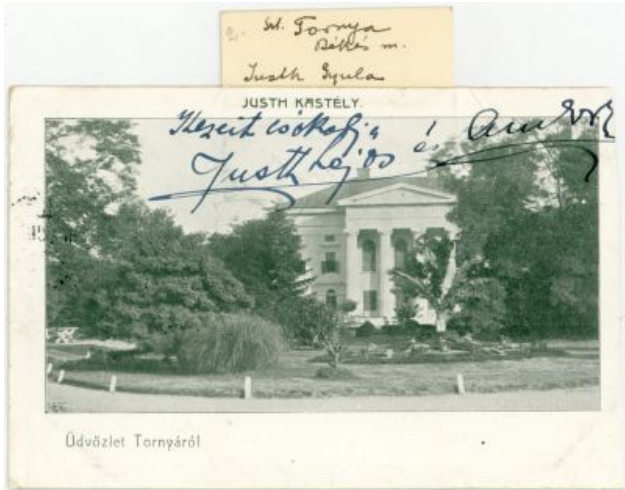 Tornya
Békés m.
Justh Gyula
JUSTH KASTÉLY.
Kezeit csókolja
Justh Lajos és
Üdvözlet Tornyáról